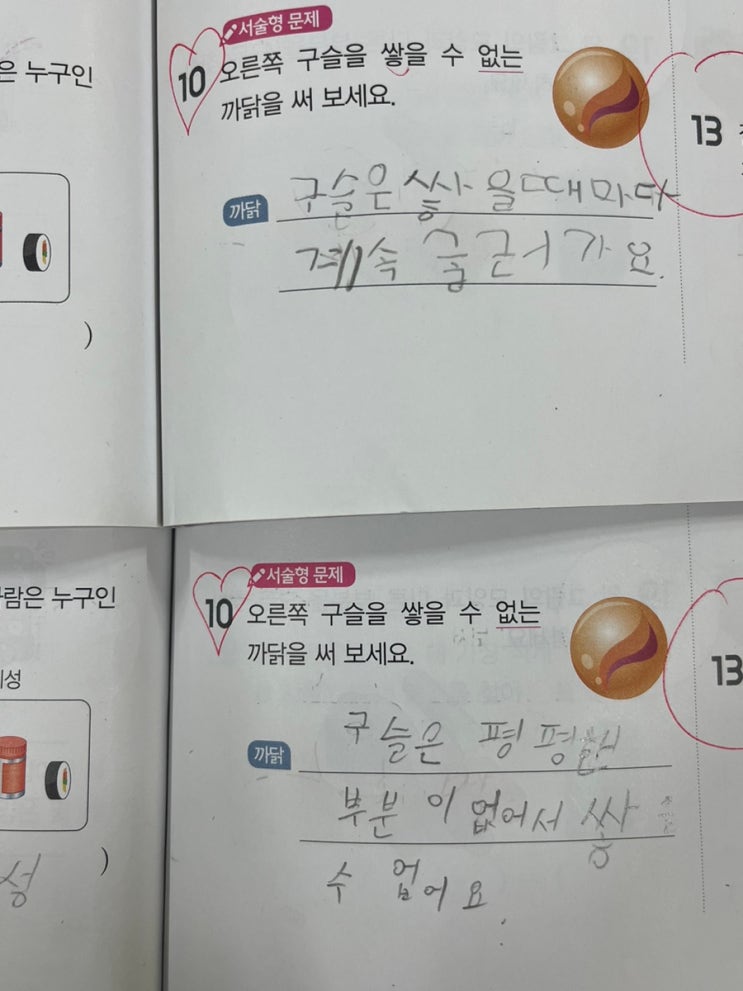 은 누구인
)
서술형 문제
10 오른쪽 구슬을 쌓을 수 없는
까닭을 써 보세요.
까닭 구슬은 쌓을때마다
계속 굴러가요.
13
람은 누구인
성
성 )
서술형 문제
10 오른쪽 구슬을 쌓을 수 없는
까닭을 써 보세요.
까닭 구슬은 평평한
부분이 없어서 쌓을
수 없어요.
13